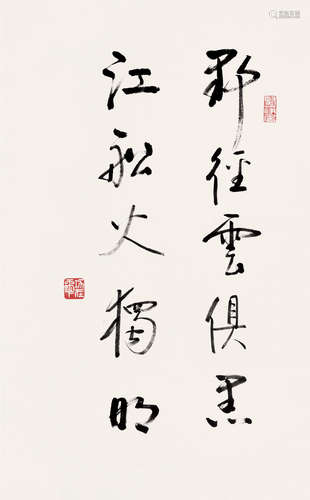 野徑雲俱黑
江船火獨明